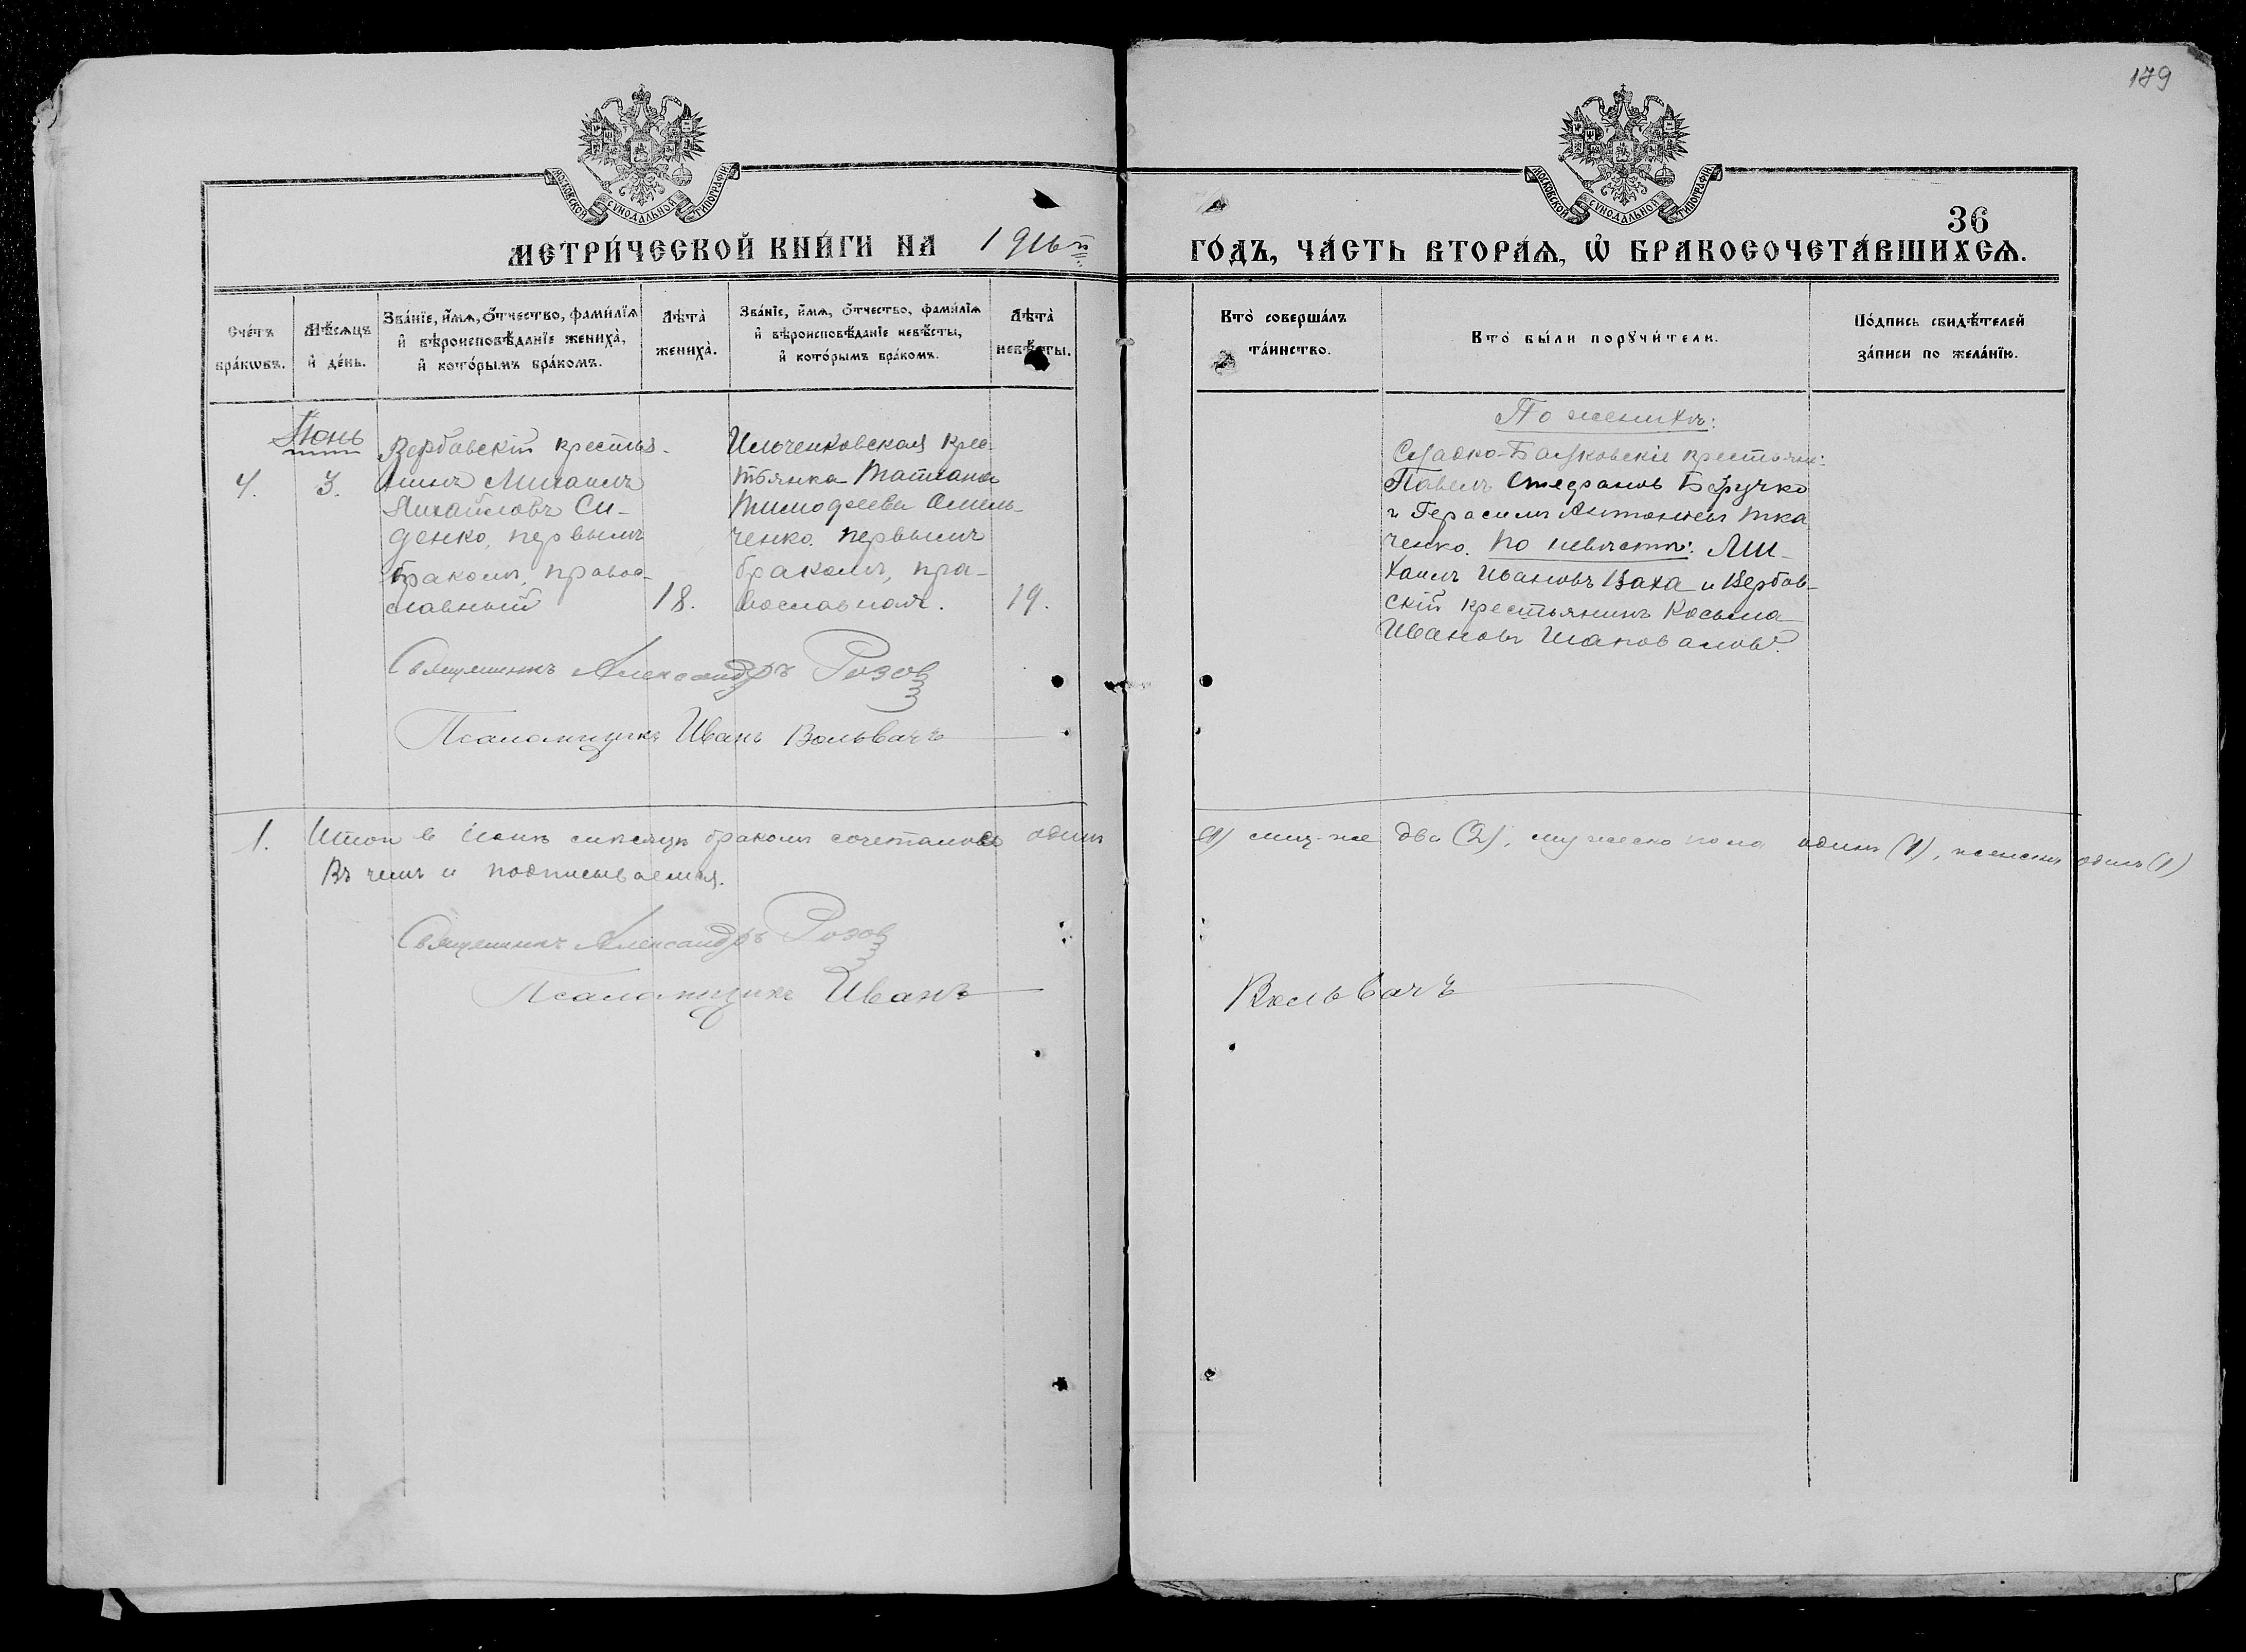 179
МОСКОВСКОЙ СѴНОДАЛЬНОЙ ТИПОГРАФІИ
МОСКОВСКОЙ СѴНОДАЛЬНОЙ ТИПОГРАФІИ
36
МЕТРИ́ЧЕСКОЙ КНИ́ГИ НА 1916й
ГО́ДЪ, ЧА́СТЬ ВТОРА́Ѧ, Ѽ БРАКОСОЧЕТА́ВШИХСѦ.
Сче́тъ
бра́кѡвъ.
Мѣ́сѧцъ
и҆ де́нь.
Зва́нїе, и҆́мѧ, ѻ҆́тчество, фами́лїѧ
и҆ вѣроисповѣ́данїе жениха̀,
и҆ кото́рымъ бра́комъ.
Лѣта̀
жениха̀.
Зва́нїе, и҆́мѧ, ѻ҆́тчество, фами́лїѧ
и҆ вѣроисповѣ́данїе невѣ́сты,
и҆ кото́рымъ бра́комъ.
Лѣта̀
невѣ́сты.
Кто̀ соверша́лъ
та́инство.
Кто̀ бы́ли порꙋчи́тели.
По́дпись свидѣ́телей
за́писи по жела́нїю.
Іюнь
4.
3.
Вербовскій крестья-
нинъ Михаилъ
Михайловъ Си-
денко, первымъ
бракомъ, право-
славный
18.
Ильченковская крес-
тьянка Татіана
Тимофеева Омель-
ченко. первымъ
бракомъ, пра-
вославная.
19.
По женихѣ:
Сладко-Балковскіе крестьяне:
Павелъ Стефановъ
и Герасимъ Антоніевъ Тка
ченко. По невѣстѣ: Ми-
хаилъ Ивановъ Ваха и Вербов-
скій крестьянинъ Косьма
Ивановъ Шаповаловъ.
Священникъ Александръ Розов
Псаломщикъ Иванъ Вольвачъ
1.
Итого въ Іюнѣ мѣсяцѣ бракомъ сочеталось одинъ (1) лиц-же два (2), мужеско пола одинъ (1), женска одинъ (1)
Въ чемъ и подписываемся.
Священникъ Александръ Розов
Псаломщикъ Иванъ Вольвачъ